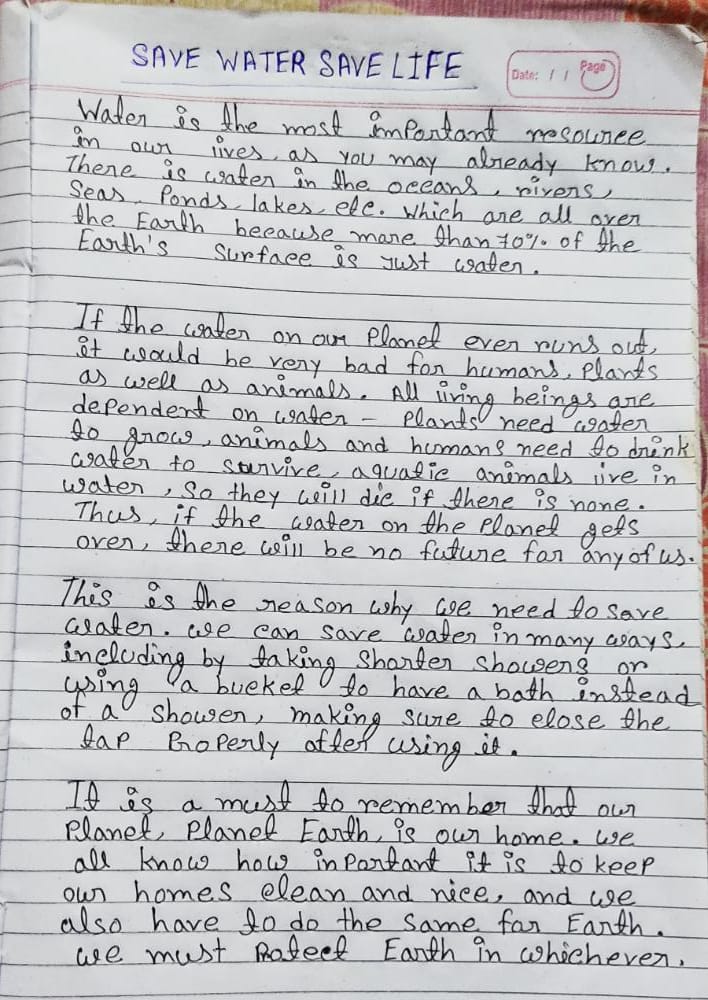 SAVE WATER SAVE LIFE
Date: / / Page
Water is the most important resource
in our lives, as you may already know.
There is water in the oceans, rivers,
Seas, Ponds, lakes, etc. which are all over
the Earth because more than 70% of the
Earth's Surface is Just water.
If the water on our Planet ever runs out,
it would be very bad for humans, Plants
as well as animals. All living beings are
dependent on water - Plants need water
to grow, animals and humans need to drink
water to survive, aquatic animals live in
water, So they will die if there is none.
Thus, if the water on the Planet gets
over, there will be no future for any of us.
This is the reason why we need to save
water. we can save water in many ways,
including by taking Shorter Showers or
using a bucket to have a bath instead
of a shower, making sure to close the
tap Properly after using it.
It is a must to remember that our
Planet, Planet Earth, is our home. we
all know how inportant it is to keep
our homes clean and nice, and we
also have to do the same for Earth.
we must Protect Earth in whichever.